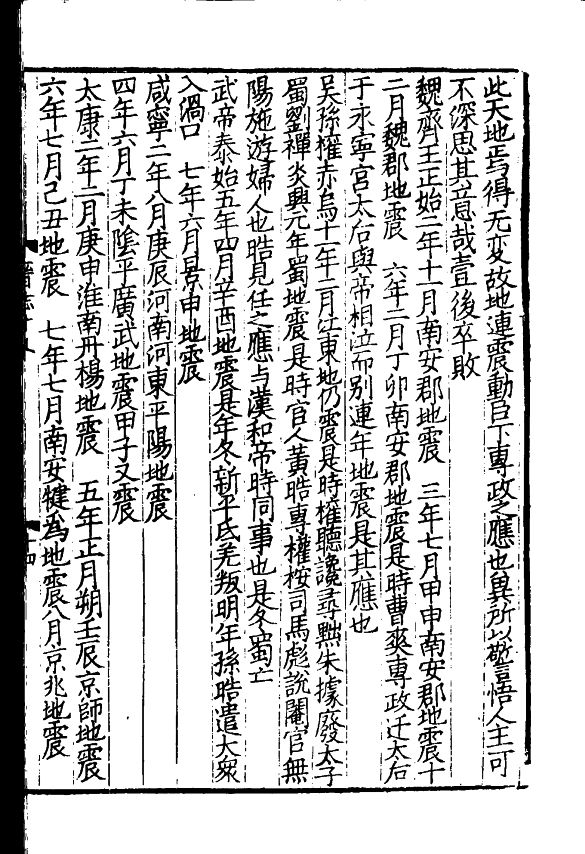 此天地焉得无変故地連震動臣下専政之應也異所以警悟人主可
不深思其意哉壹後卒敗
魏齊王正始二年十一月南安郡地震　三年七月甲申南安郡地震十
二月魏郡地震　六年二月丁卯南安郡地震是時曹爽専政迁太后
于永寧宫太后與帝相泣而别連年地震是其應也
吴孫權赤烏十一年二月江東地仍震是時權聽讒尋黜朱據廢太子
蜀劉禪炎興元年蜀地震是時宦人黄皓専權桉司馬彪說閹官無
陽施游婦人也皓見任之應与漢和帝時同事也是冬蜀亡
武帝泰始五年四月辛酉地震是年冬新平氐羌叛明年孫皓遣大衆
入渦口　七年六月景申地震
咸寧二年八月庚辰河南河東平陽地震
四年六月丁未陰平廣武地震甲子又震
太康二年二月庚申淮南丹楊地震　五年正月朔壬辰京師地震
六年七月己丑地震　七年七月南安犍爲地震八月京兆地震
十四